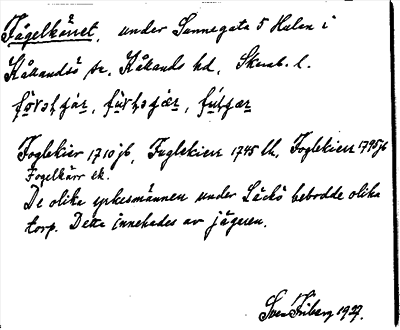 Fågelkärret, under Sannegata 5 Halen i
Kållandsö sn. Kållands hd, Skarab. l.
Foglekier 1710 jb, Fuglekierr 1745 lh, Foglekierr 1795 jb
Fogelkärr ek.
De olika yrkesmännen under Läckö bebodde olika
torp. Detta innehades av jägeren.
Sven Friberg 1927.